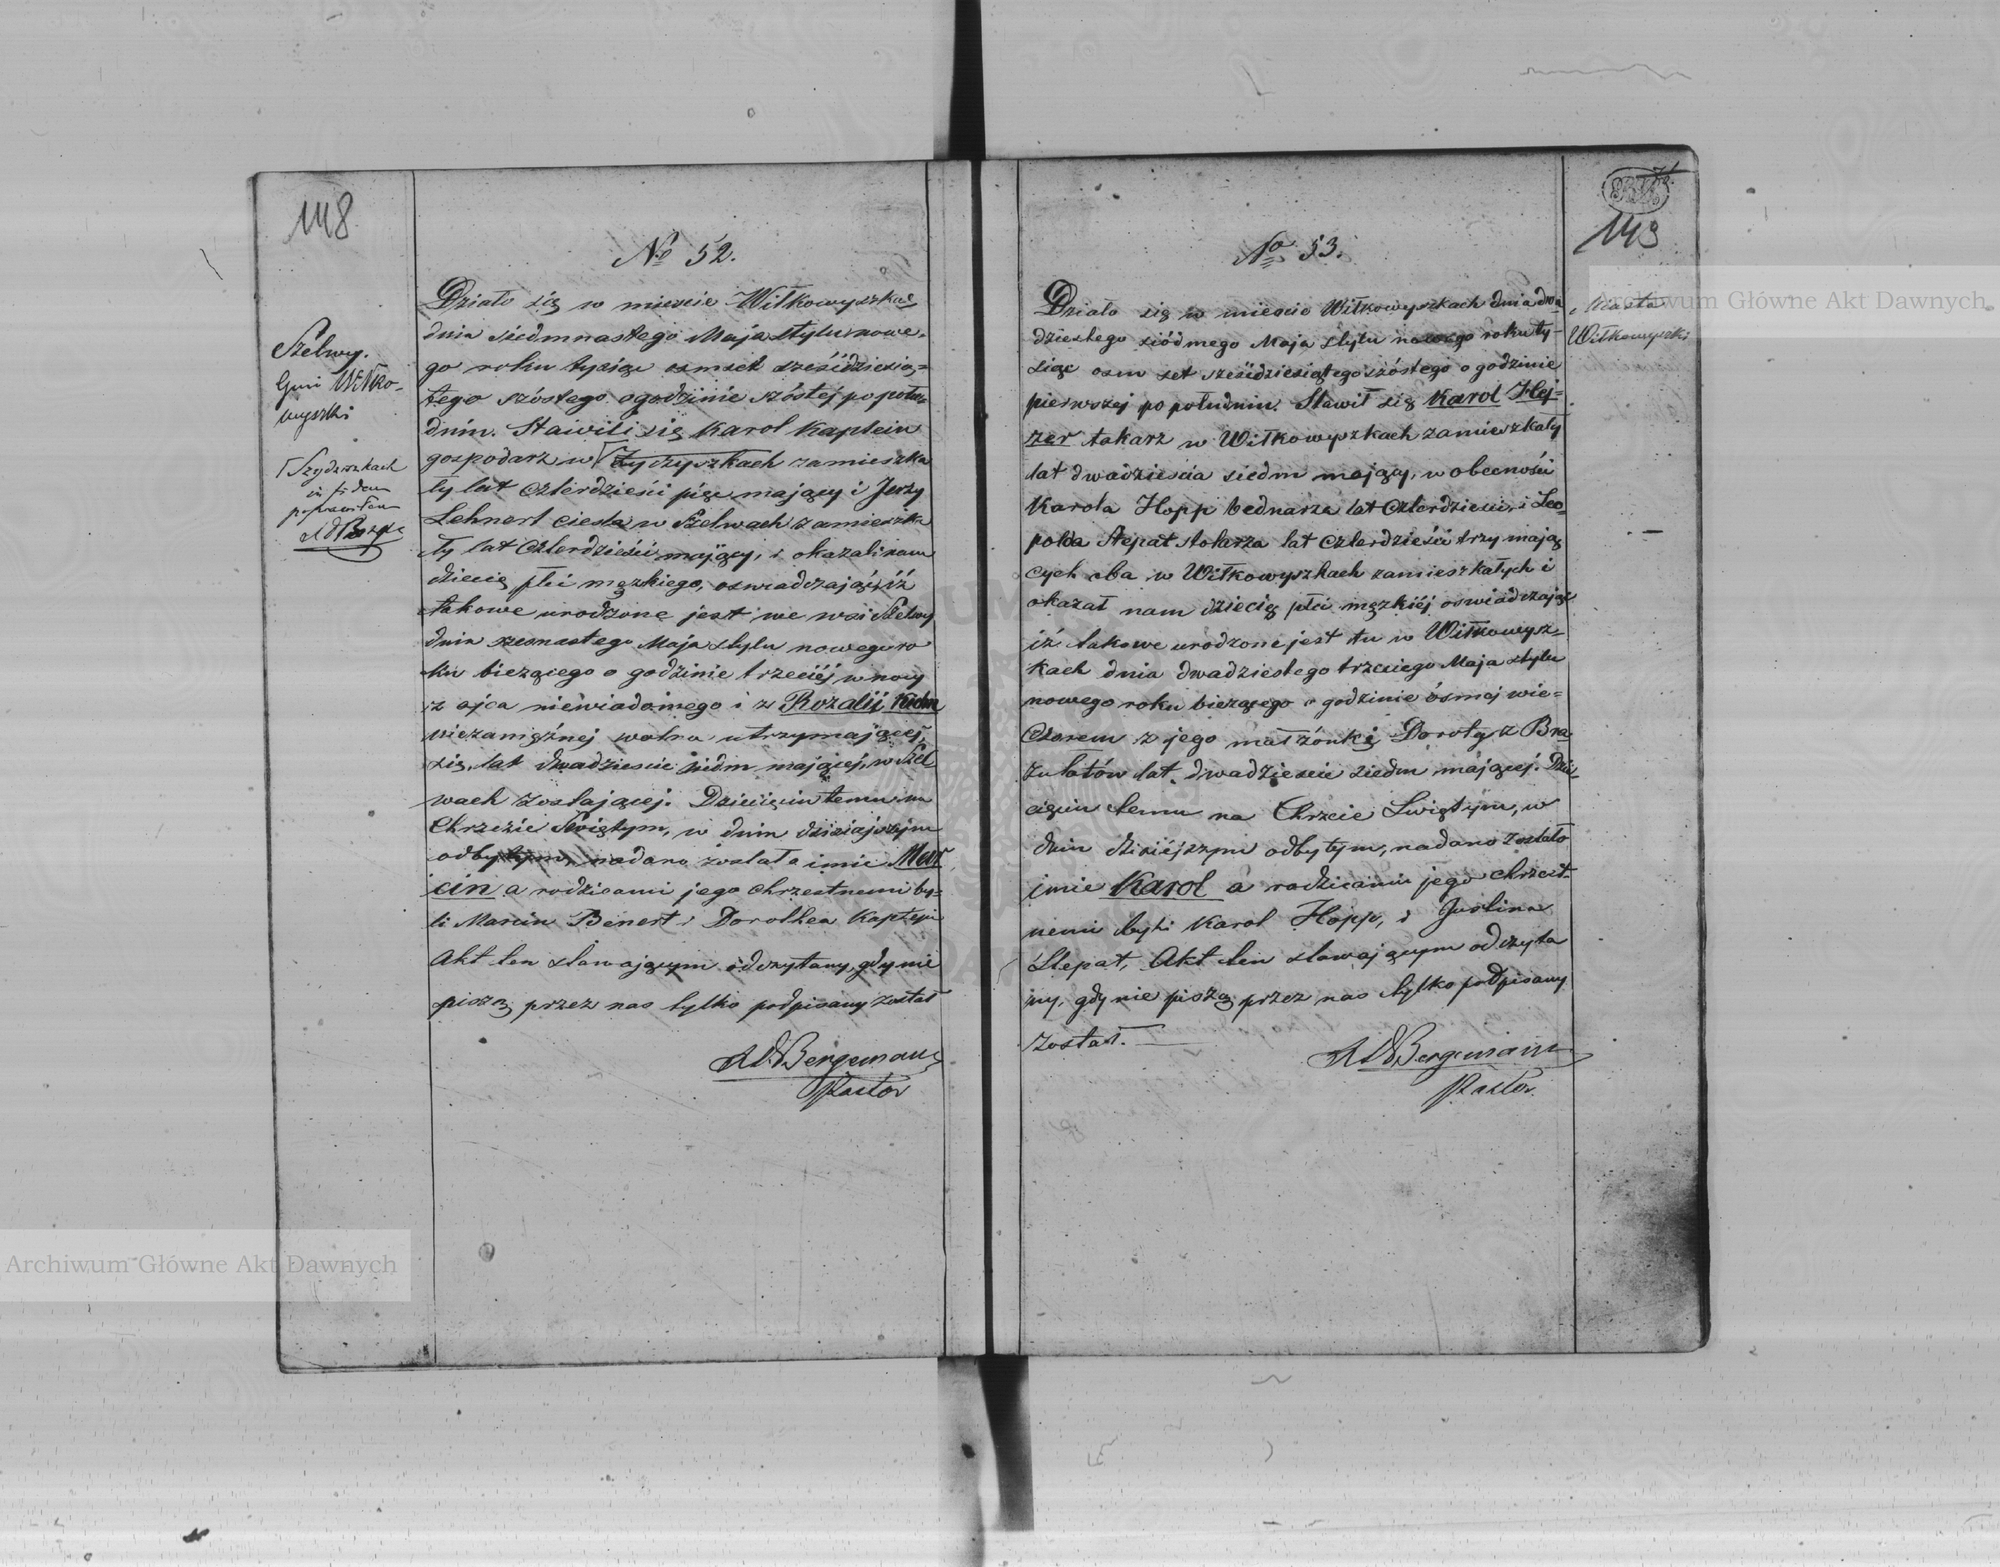 148
No 52.
Szelwy.
Gmi Wiłko-
wyszki
Działo się w mieście Wiłkowyszkach
dnia siedmnastego Maja stylu nowe-
go roku tysiąc osmset sześćdziesią-
tego szóstego o godzinie szóstéj popołu-
dniu. Stawili się Karol Kaptein
gospodarz w Tyczyszkach zamieszka
ły lat czterdzieści pięć mający i Jerzy
Lehnert cieśla w Szelwach zamieszka
ły lat czterdzieści mający, i okazali nam
dziecię płci męzkiego, oswiadczając iż
takowe urodzone jest we wsi Szelwy
dnia szesnastego Maja stylu nowego ro
ku bieżącego o godzinie trzeciéj w nocy
z ojca niewiadomego i z Rozalii
niezamężnej utrzymającej
się, lat dwadzieścia siedm mającej, w Szel
wach zostającej. Dziecięciu temu na
Chrzcie Świętym, w dniu dzisiajszym
odbytym, nadano zostało imie Mar
cin a rodzicami jego chrzestnemi by-
li Marcin Benert i Dorothea Kaptein
Akt ten stawającym odczytany, gdy nie
piszą przez nas tylko podpisany został
Szyderszkach
in fidem
poprawiłem
AdBerge
AdBergemann
Pastor
149
No 53.
Miasto
Wiłkowyszki
Działo się w mieście Wiłkowyszkach dnia dwa
dziestego siódmego Maja stylu nowego roku ty-
siąc osm set sześćdziesiątego szóstego o godzinie
pierwszej po południu. Stawił się Karol Hej-
zer tokarz w Wiłkowyszkach zamieszkały
lat dwadzieścia siedm mający, w obecności
Karola Hopp bednarza lat czterdzieści, i Leo-
polda Stepat stolarza lat czterdzieści trzy mają
cych oba w Wiłkowyszkach zamieszkałych i
okazał nam dziecię płci męzkiéj oswiadczając
iż takowe urodzone jest tu w Wiłkowysz-
kach dnia dwadziestego trzeciego Maja stylu
nowego roku bieżącego o godzinie ósmej wie-
czorem z jego małżonki Doroty z Bra
zulatów lat dwadzieścia siedm mającej. Dzie-
cięciu temu na Chrzcie Swiętym, w
dniu dzisiéjszym odbytym, nadano zostało
imie Karol a rodzicami jego chrzest-
nemi byli Karol Hopp, i Justina
Stepat, Akt ten stawającym odczyta
ny, gdy nie piszą przez nas tylko podpisany
został.
AdBergemann
Pastor.
Archiwum Główne Akt Dawnych
Archiwum Główne Akt Dawnych